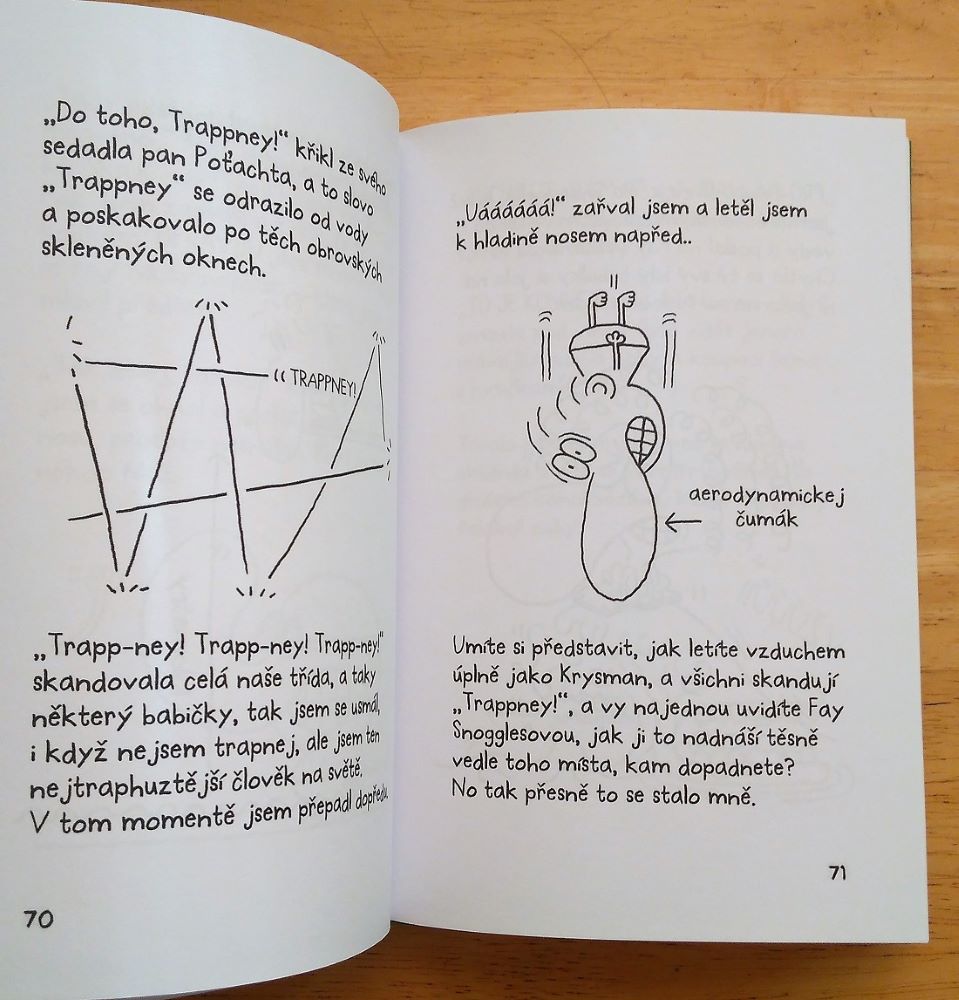 „Do toho, Trappney!“ křikl ze svého
sedadla pan Poťachta, a to slovo
„Trappney“ se odrazilo od vody
a poskakovalo po těch obrovských
skleněných oknech.
TRAPPNEY!
„Trapp-ney! Trapp-ney! Trapp-ney!“
skandovala celá naše třída, a taky
některý babičky, tak jsem se usmál,
i když nejsem trapnej, ale jsem ten
nejtraphuztější člověk na světě.
V tom momentě jsem přepadl dopředu.
70
„Uáááááá!“ zařval jsem a letěl jsem
k hladině nosem napřed..
aerodynamickej
čumák
Umíte si představit, jak letíte vzduchem
úplně jako Krysman, a všichni skandují
„Trappney!“, a vy najednou uvidíte Fay
Snogglesovou, jak ji to nadnáší těsně
vedle toho místa, kam dopadnete?
No tak přesně to se stalo mně.
71